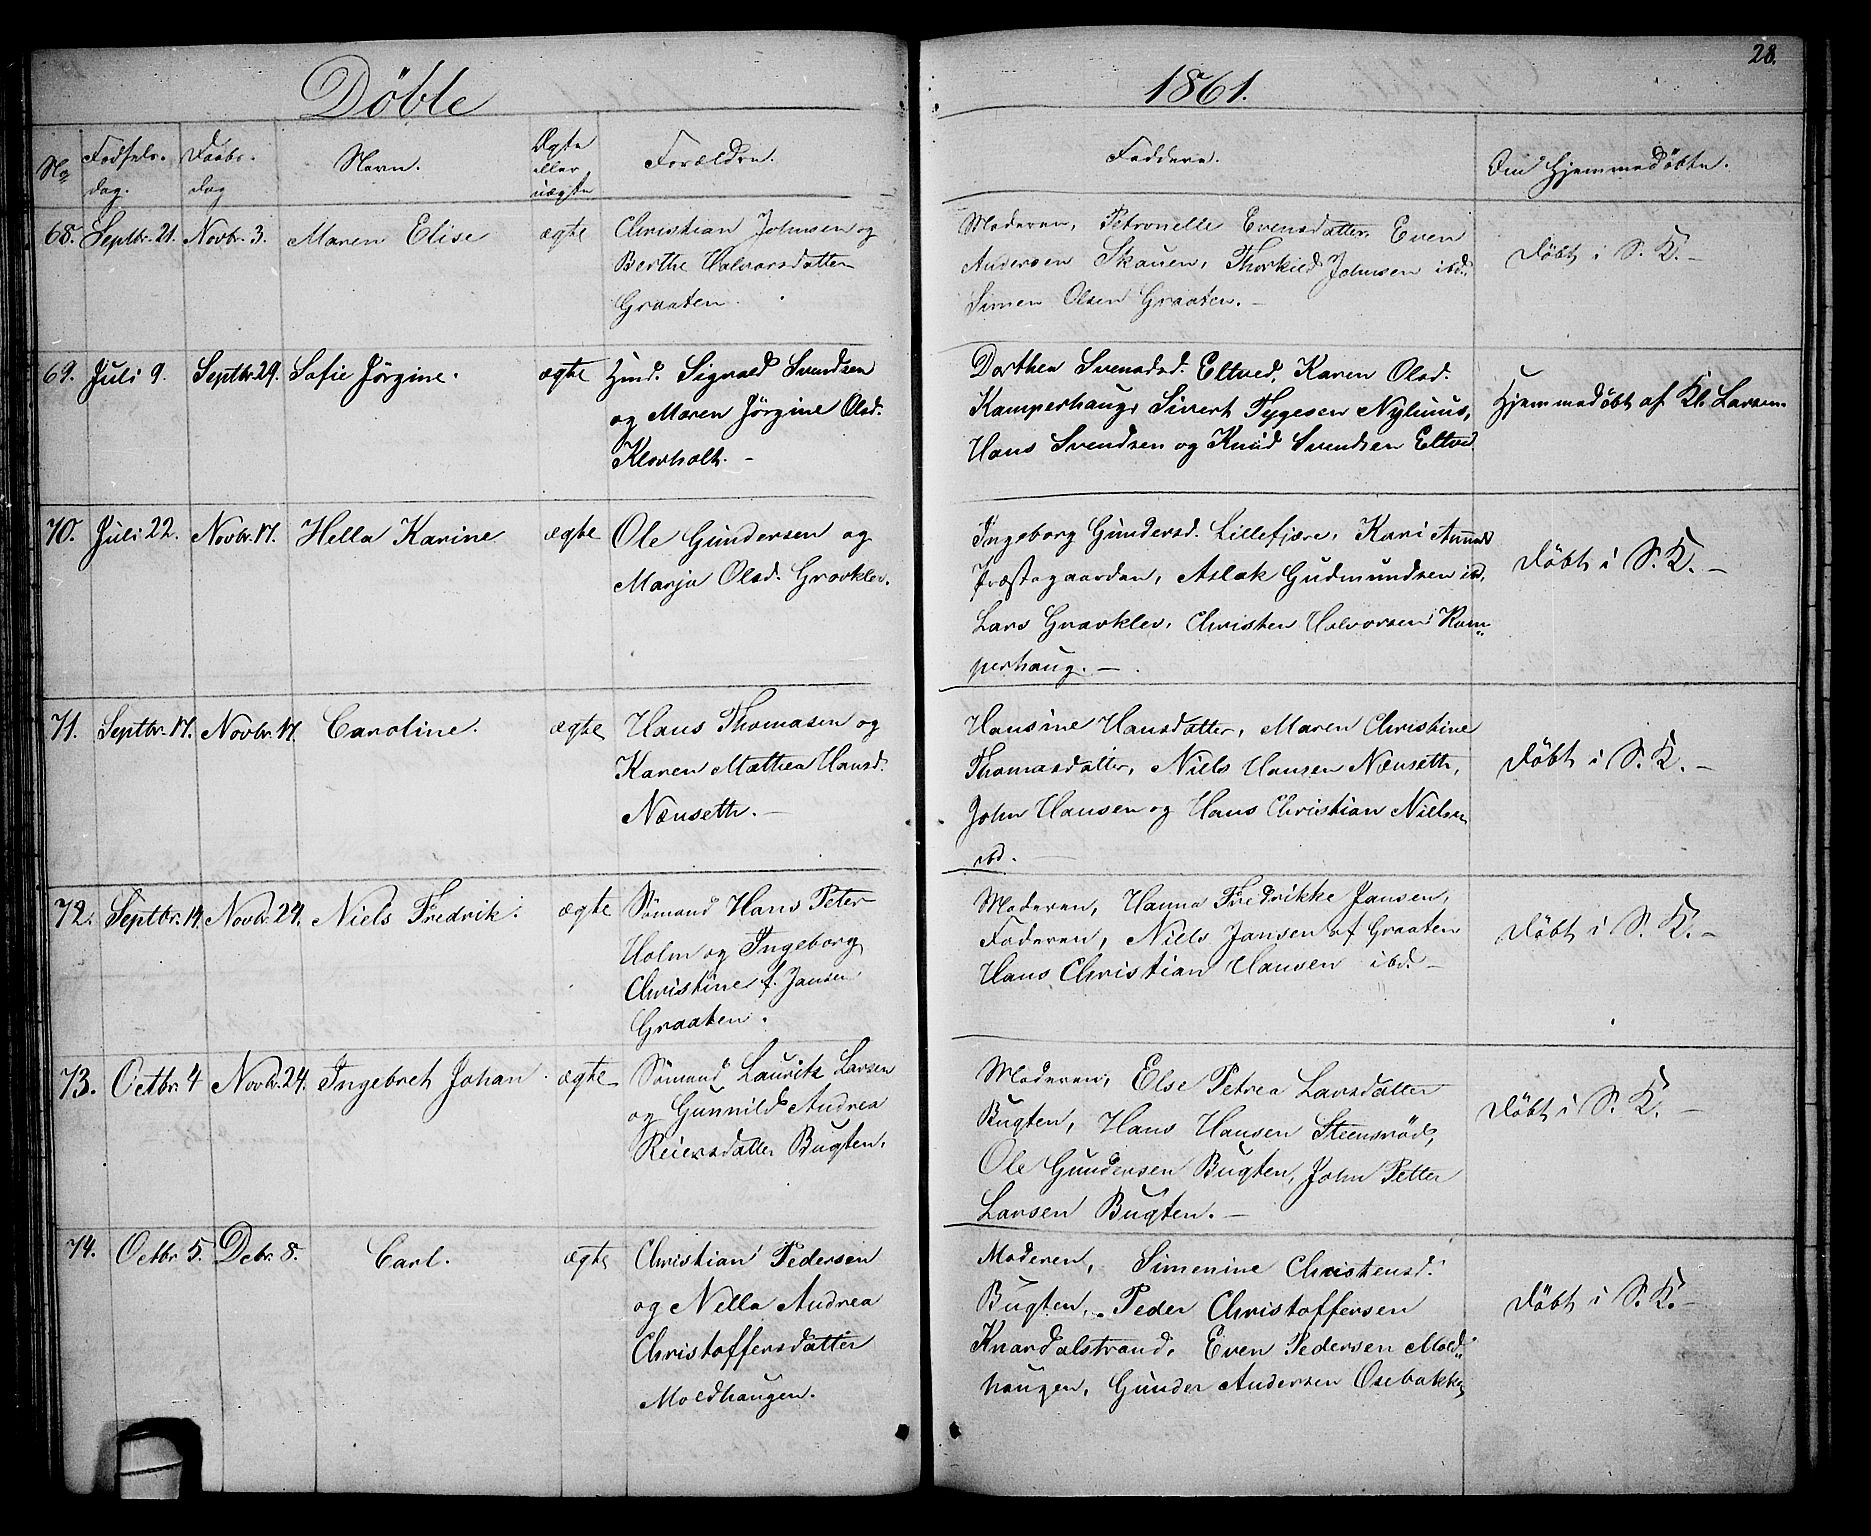 28.
Döbte 1861.
No Fødsels- dag. Daabs- dag Navn. Ægte eller uægte Forældre. Faddere. Om Hjemmedøbte.
68. Septbr. 21. Novbr. 3. Maren Elise ægte Christian Johnsen og
Berthe Halvorsdatter
Graaten.
Moderen, Petronelle Evensdatter, Even
Andersen Skauen, Thorkild Johnsen ibd.
Simen Olsen Graaten. –
Døbt i S. K. –
69. Juli 9. Septbr. 29. Sofie Jörgine. ægte Hmd. Sigvald Svendsen
og Maren Jörgine Olsd.
Klovholt. –
Dorthea Svendsd. Eltved, Karen Olsd.
Kamperhaug, Sivert Tygesen Nyhuus,
Hans Svendsen og Knud Svendsen Eltved.
Hjemmedøbt af Kl. Larsen.
70. Juli 22. Novbr. 17. Hella Karine ægte Ole Gundersen og
Marja Olsd. Gravklev.
Ingeborg Gundersd. Lillefjære, Kari
Præstegaarden, Aslak Gudmundsen ibd,
Lars Gravklev, Christen Halvorsen Kam-
perhaug. –
Døbt i S. K. –
71. Septbr. 17. Novbr. 17. Caroline. ægte Hans Thomasen og
Karen Mathea Hansd.
Næuseth. –
Hansine Hansdatter, Maren Christine
Thomasdatter, Niels Hansen Næuseth,
John Hansen og Hans Christian Nielsen
ibd.
Døbt i S. K. –
72. Septbr. 14. Novbr. 24. Niels Fredrik. ægte Sömand Hans Peter
Holm og Ingeborg
Christine f. Jansen
Graaten.
Moderen, Hanna Fredrikke Jansen,
Faderen, Niels Jansen af Graaten
Hans Christian Hansen ibd. –
Døbt i S. K. –
73. Octbr. 4 Novbr. 24. Ingebret Johan ægte Sömand Lauritz Larsen
og Gunnild Andrea
Reiersdatter Bugten.
Moderen, Else Petrea Larsdatter
Bugten, Hans Hansen Steensröd,
Ole Gundersen Bugten, John Petter
Larsen Bugten. –
Døbt i S. K. –
74. Octbr. 5. Decbr. 8. Carl. ægte Christian Pedersen
og Nella Andrea
Christoffersdatter
Moldhaugen.
Moderen, Simenine Christensd.
Bugten, Peder Christoffersen
Knardalstrand, Even Pedersen Mold-
haugen, Gunder Andersen Osebakken
Døbt i S. K. –